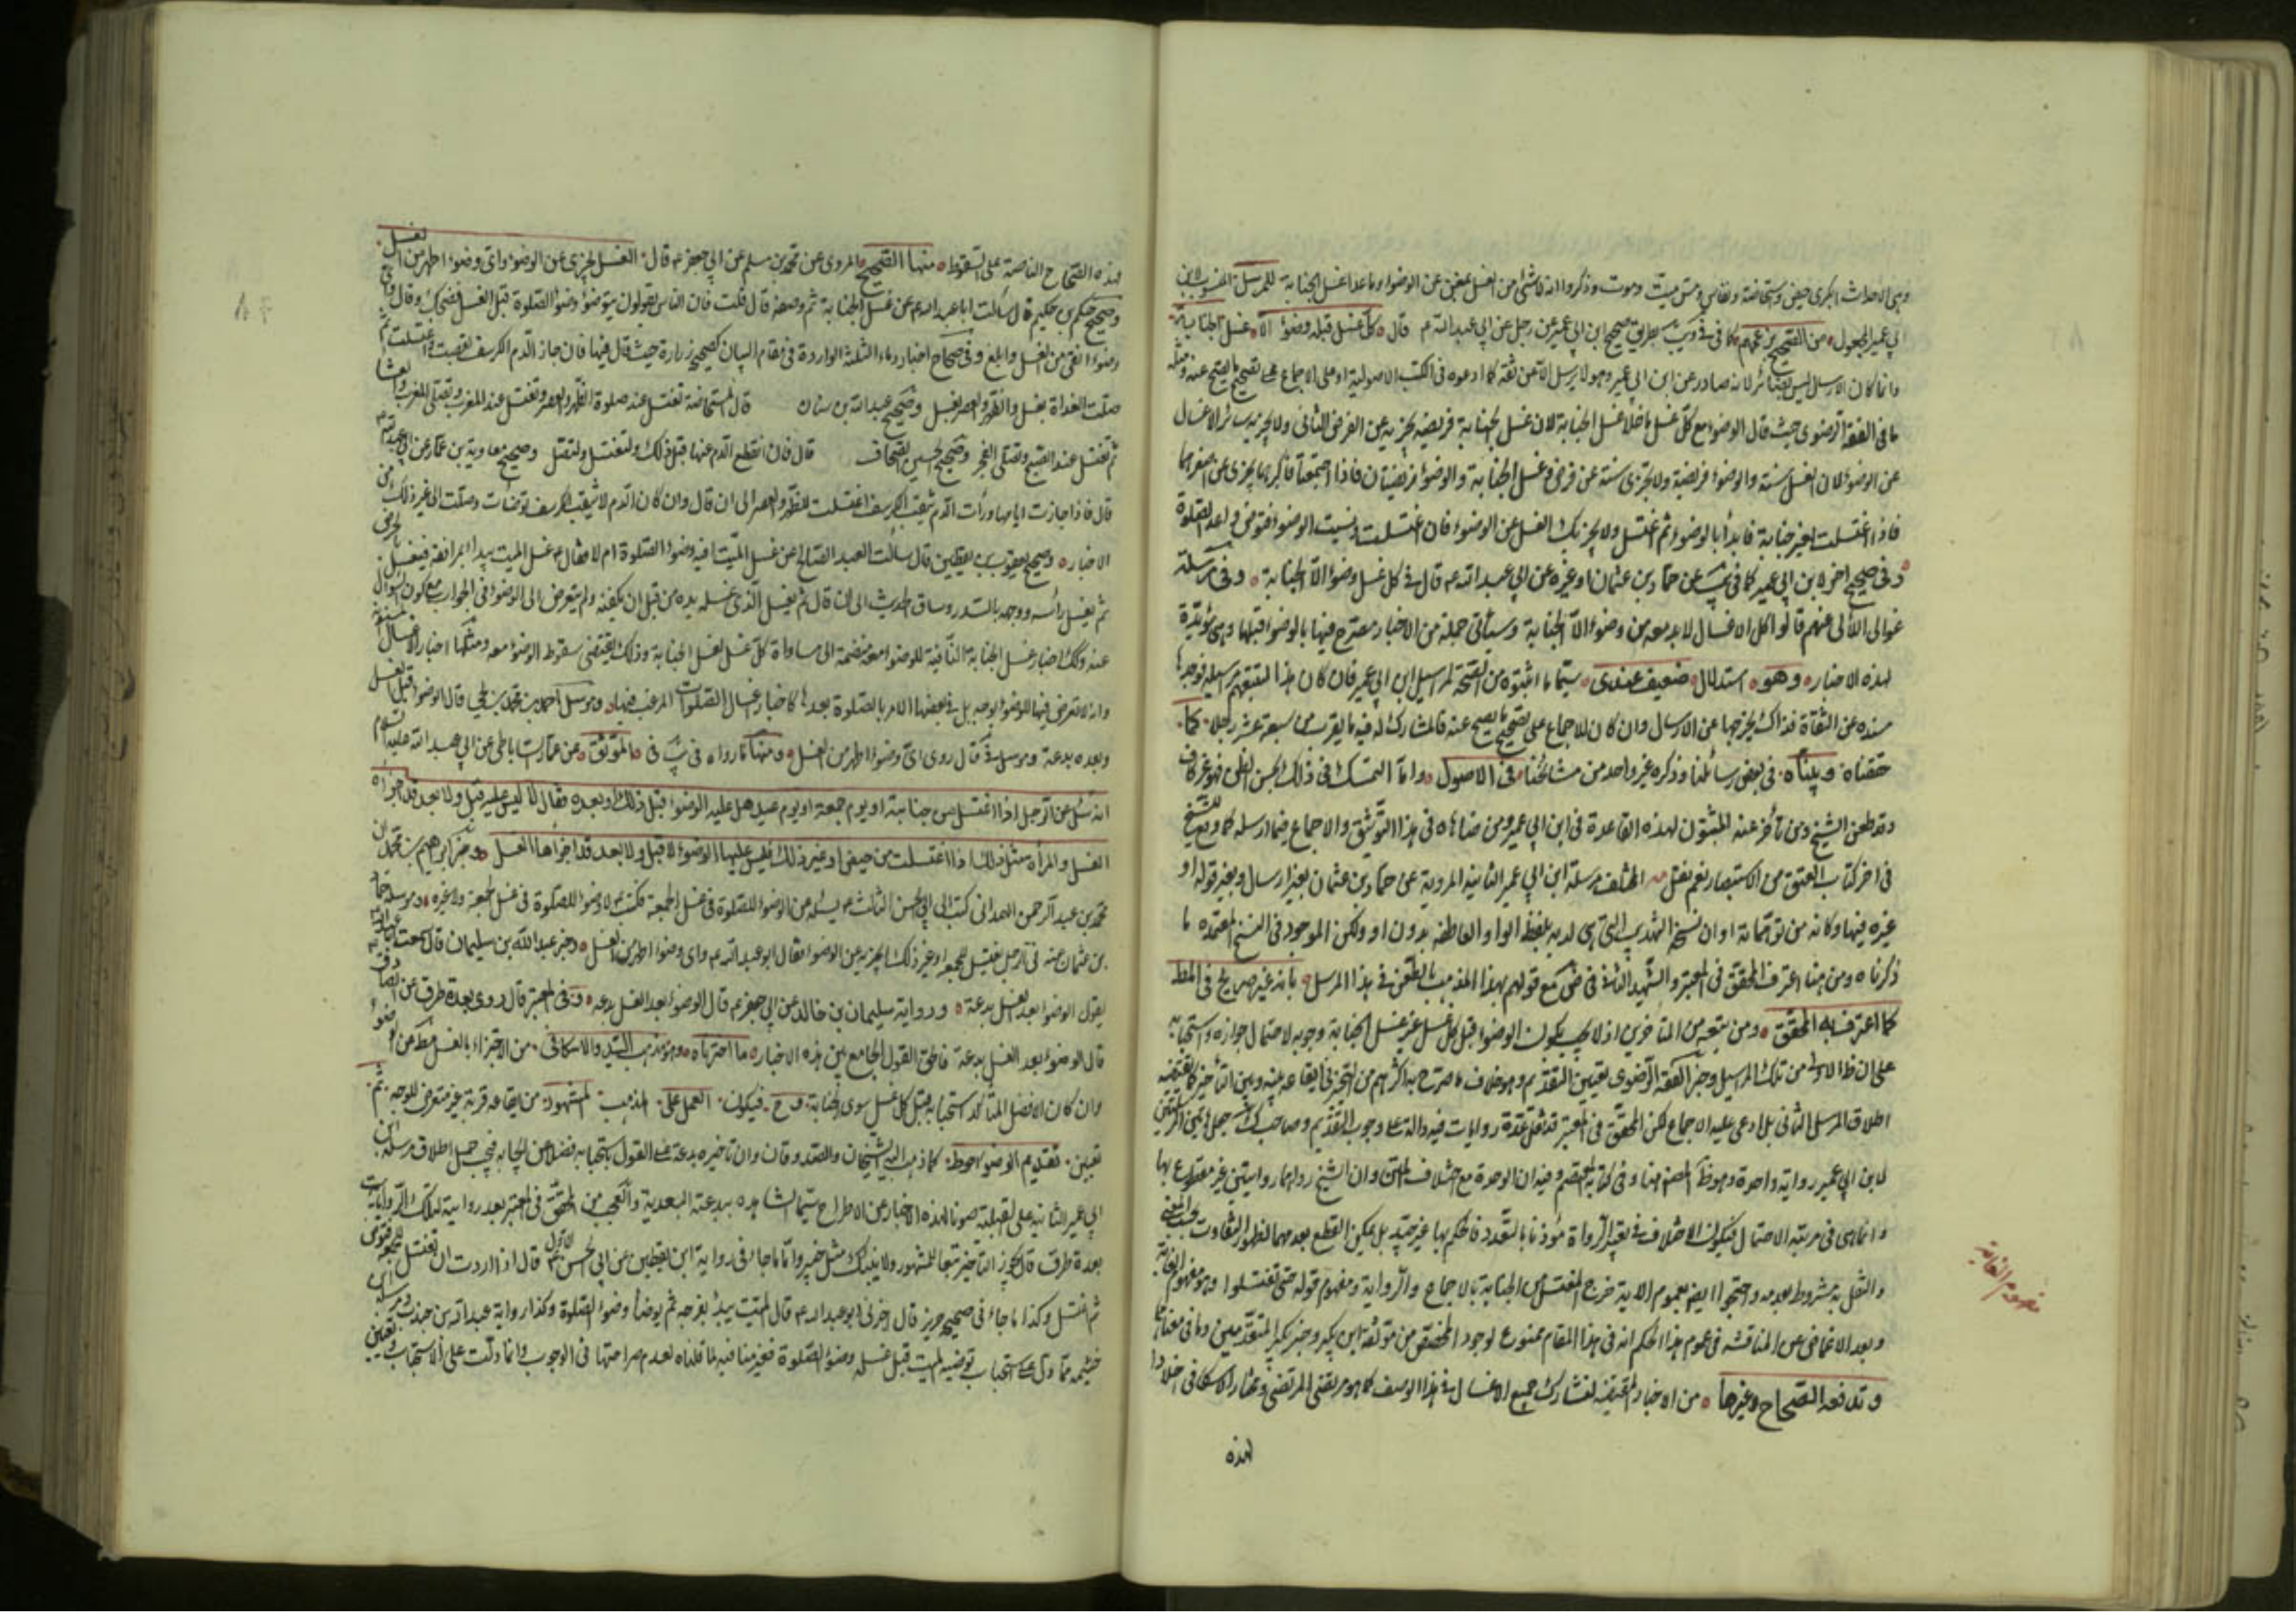 وهي الاحداث الكبرى حيض واستحاضة ونفاس ومس ميت وموت وذكروا انه لا شئ من الغسل بمغن عن الوضوء وما عدا غسل الجنابة للمرسل المنسوب لابن
ابي عمير المجعول من الصحيح بزعمهم كما في في ويب بطريق صحيح ابن ابي عمير عن رجل عن ابي عبد الله ع قال كل غسل قبله وضوء الا غسل الجنابة
وانما كان الارسال ليس بضائر لانه صادر عن ابن ابي عمير وهو لا يرسل الا عن ثقة كما ادعوه في الكتب الاصولية او على الاجماع على تصحيح ما يصح عنه ومثله
ما في الفقه الرضوي حيث قال الوضوء مع كل غسل ما خلا غسل الجنابة لان غسل الجنابة فريضة تجزيه عن الفرض الثاني ولا يجزيه سائر الاغسال
عن الوضوء لان الغسل سنة والوضوء فريضة ولا تجزي سنة عن فرض وغسل الجنابة والوضوء فريضتان فاذا اجتمعتا فاكبرهما يجزي عن اصغرهما
فاذا اغتسلت لغير جنابة فابدأ بالوضوء ثم اغتسل ولا يجزيك الغسل عن الوضوء فان اغتسلت ونسيت الوضوء فتوضئ واعد الصلوة
وفي صحيح اخر لابن ابي عمير كما في يب عن حماد بن عثمان او غيره عن ابي عبد الله ع قال في كل غسل وضوء الا الجنابة وفي مرسلة
غوالي اللألي عنهم قالوا كل الاغسال لا بد معه من وضوء الا الجنابة وسيأتي جملة من الاخبار مصرح فيها بالوضوء قبلها وهي مؤيدة
لهذه الاخبار وهو استدلال ضعيف عندي سيما ما اثبتوه من الصحة لمراسيل ابن ابي عمير فان كان هذا لتتبعهم مراسيله فوجدها
مسندة عن الثقاة فذاك يخرجها عن الارسال وان كان للاجماع على تصحيح ما يصح عنه فالمشارك له فيه ما يقرب من سبعة عشر رجلا كما
حققناه وبيناه في بعض رسائلنا وذكره غير واحد من مشائخنا في الاصول واما التمسك في ذلك بحسن الظن فهو غير كاف
وقد طعن الشيخ ومن تأخر عنه المثبتون لهذه القاعدة في ابن ابي عمير ومن ضاهاه في هذا التوثيق والاجماع فيما ارسله كما وقع للشيخ
في اخر كتاب العتق من الاستبصار نعم نقل المختلف مرسلة ابن ابي عمير الثانية المروية عن حماد بن عثمان بغير ارسال وبغير قوله او
غيره فيها وكانه من توهماته او ان نسخة التهذيب التي هي لديه بلفظ الواو العاطفة بدون او ولكن الموجود في النسخ المعتمدة ما
ذكرناه ومن هنا اعترف المحقق في المعتبر والشهيد الثاني في ض مع قولهم بهذا المذهب بالطعن في هذا المرسل بانه غير صريح في المط
كما اعترف به المحقق ومن تبعه من المتاخرين اذ لا يجب بكون الوضوء قبل كل غسل غير غسل الجنابة وجوبه لاحتمال جوازه واستحبابه
على ان ظ الاولى من تلك المراسيل وخبر الفقه الرضوي تعيين التقديم وهو خلاف ما صرح به اكثرهم من التخير في ايقاعه بينه وبين التأخير كما يقتضيه
اطلاق المرسل الثاني بل ادعى عليه الاجماع لكن المحقق في المعتبر قد نقل عدة روايات فيه دالة على وجوب التقديم وصاحب ك جعل هاتين المرسلتين
لابن ابي عمير رواية واحدة وهو ظ المصنف هنا وفي كتابه المعتصم وفيه ان الوحدة مع اختلاف المتن وان الشيخ رواهما روايتين غير مقطوع بها
وانما هي في مرتبة الاحتمال فيكون الاختلاف في تعبير الرواة مؤذنا بالتعدد فالحكم بها غير جيد بل يمكن القطع بعدمها لظهور التفاوت بحسب المعنى
والنقل به مشروط بعدمه واحتجوا ايضا بعموم الاية خرج المغتسل من الجنابة بالاجماع والرواية ومفهوم قوله حتى تغتسلوا وهو مفهوم الغاية
وبعد الاغماض عن المناقشة في عموم هذا الحكم انه في هذا المقام ممنوع لوجود المخصص من موثقة ابن بكير وخبر بكير المتقدمين وما في معناهما
وتدافعه الصحاح وغيرها من الاخبار المقتضية لتشارك جميع الاغسال في هذا الوصف كما هو مرتضى المرتضى ومختار الاسكافي اخلادا
لهذه
مفهوم الغاية
لهذه الصحاح الناصة على السقوط منها الصحيح المروي عن محمد بن مسلم عن ابي جعفر ع قال الغسل يجزي عن الوضوء واي وضوء اطهر من الغسل
وصحيح حكم بن حكيم قال سالت ابا عبد الله ع عن غسل الجنابة ثم وصفه قال قلت فان الناس يقولون يتوضؤ وضوء الصلوة قبل الغسل فضحك وقال واي
وضوء انقى من الغسل وابلغ وفي صحاح اخبار دماء الثلثة الواردة في مقام البيان كصحيح زرارة حيث قال فيها فان جاز الدم الكرسف تعصبت واغتسلت ثم
صلت الغداة بغسل والظهر والعصر بغسل وصحيح عبد الله بن سنان قال المستحاضة تغتسل عند صلوة الظهر والعصر وتغتسل عند المغرب وتصلي المغرب والعشا
ثم تغتسل عند الصبح وتصلي الفجر وصحيح الحسين الصحاف قال فان انقطع الدم عنها قبل ذلك فلتغتسل ولتصل وصحيح معاوية بن عمار عن ابي عبد الله ع
قال فاذا جازت ايامها ورأت الدم يثقب الكرسف اغتسلت للظهر والعصر الى ان قال وان كان الدم لا يثقب الكرسف توضأت وصلت الى غير ذلك من
الاخبار وصحيح يعقوب بن يقطين قال سالت العبد الصالح عن غسل الميت افيه وضوء الصلوة ام لا فقال ع غسل الميت يبدأ بمرافقه فيغسل بالحرض
ثم يغسل رأسه ووجهه بالسدر وساق الحديث الى ان قال ثم يغسل الذي غسله يده من قبل ان يكفنه ولم يتعرض الى الوضوء في الجواب مع كون السؤال
عنه وتلك اخبار غسل الجنابة النافية للوضوء معه منضمة الى مساواة كل غسل لغسل الجنابة وذلك يقتضي سقوط الوضوء معه ومثلها اخبار الاغسال
وانه لا تعرض فيها للوضوء بوجه بل في بعضها الامر بالصلوة بعدها كاخبار اغسال الصلوات المرغب فيها ومرسل احمد بن محمد بن يحيى قال الوضوء قبل الغسل
وبعده بدعة ومرسل في قال روى اي وضوء اطهر من الغسل ومنها ما رواه في يب في الموثق عن عمار الساباطي عن ابي عبد الله عليه السلام
انه سئل عن الرجل اذا اغتسل من جنابة او يوم جمعة او يوم عيد هل عليه الوضوء قبل ذلك او بعده فقال لا ليس عليه قبل ولا بعد قد اجزاه
الغسل والمراة مثل ذلك اذا اغتسلت من حيض او غير ذلك فليس عليها الوضوء لا قبل ولا بعد قد اجزأها الغسل وخبر ابراهيم بن محمد ان
محمد بن عبد الرحمن الهمداني كتب الى ابي الحسن الثالث ع يسئله عن الوضوء للصلوة في غسل الجمعة فكتب ع لا وضوء للصلوة في غسل الجمعة ولا غيره ومرسل حماد
بن عثمان عنه في الرجل يغتسل للجمعة او غير ذلك ايجزيه من الوضوء فقال ابو عبد الله ع واي وضوء اطهر من الغسل وخبر عبد الله بن سليمان قال سمعت ابا عبد الله ع
يقول الوضوء بعد الغسل بدعة ورواية سليمان بن خالد عن ابي جعفر ع قال الوضوء بعد الغسل بدعة وفي المعتبر قال روى بعدة طرق عن الصادق ع
قال الوضوء بعد الغسل بدعة فالحق القول الجامع بين هذه الاخبار ما اخترناه وهو مذهب السيد والاسكافي من الاجتزاء بالغسل مط عن الوضوء
وان كان الافضل المتأكد استحبابه قبل كل غسل سوى الجنابة وح فيكون العمل على المذهب المشهور من ايقاعه قربة غير متعرض للوجه ثم
تعيين تقديم الوضوء احوط كما ذهب اليه الشيخان والصدوقان وان تاخيره بدعة على القول باستحبابه فضلا عن ايجابه فيجب حمل اطلاق مرسلة ابن
ابي عمير الثانية على القبلية صونا لهذه الاخبار عن الاطراح سيما الشاهده ببدعته البعدية والعجب من المحقق في المعتبر بعد رواية لتلك الروايات
بعدة طرق قال يجوز التاخير تبعا للمشهور ولا ينبئك مثل خبير واما ما جاء في رواية ابن يقطين عن ابي الحسن الاول ع قال اذا اردت ان تغتسل للجمعة فتوضئ
ثم اغتسل وكذا ما جاء في صحيح حريز قال اخبرني ابو عبد الله ع قال الميت يبدأ بفرجه ثم يوضأ وضوء الصلوة وكذا رواية عبد الله بن عبيد ومرسلة ابي
خيثمة مما دل على استحباب توضيه الميت قبل غسله وضوء الصلوة فغير مناف لما قلناه لعدم صراحتها في الوجوب وانما دلت على الاستحباب وتعيين